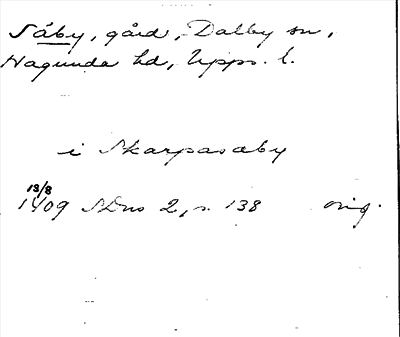 Såby, gård, Dalby sn,
Hagunda hd, Upps. l.
i Skarpasaby
13/8
1409 SDns 2, s. 138 orig.